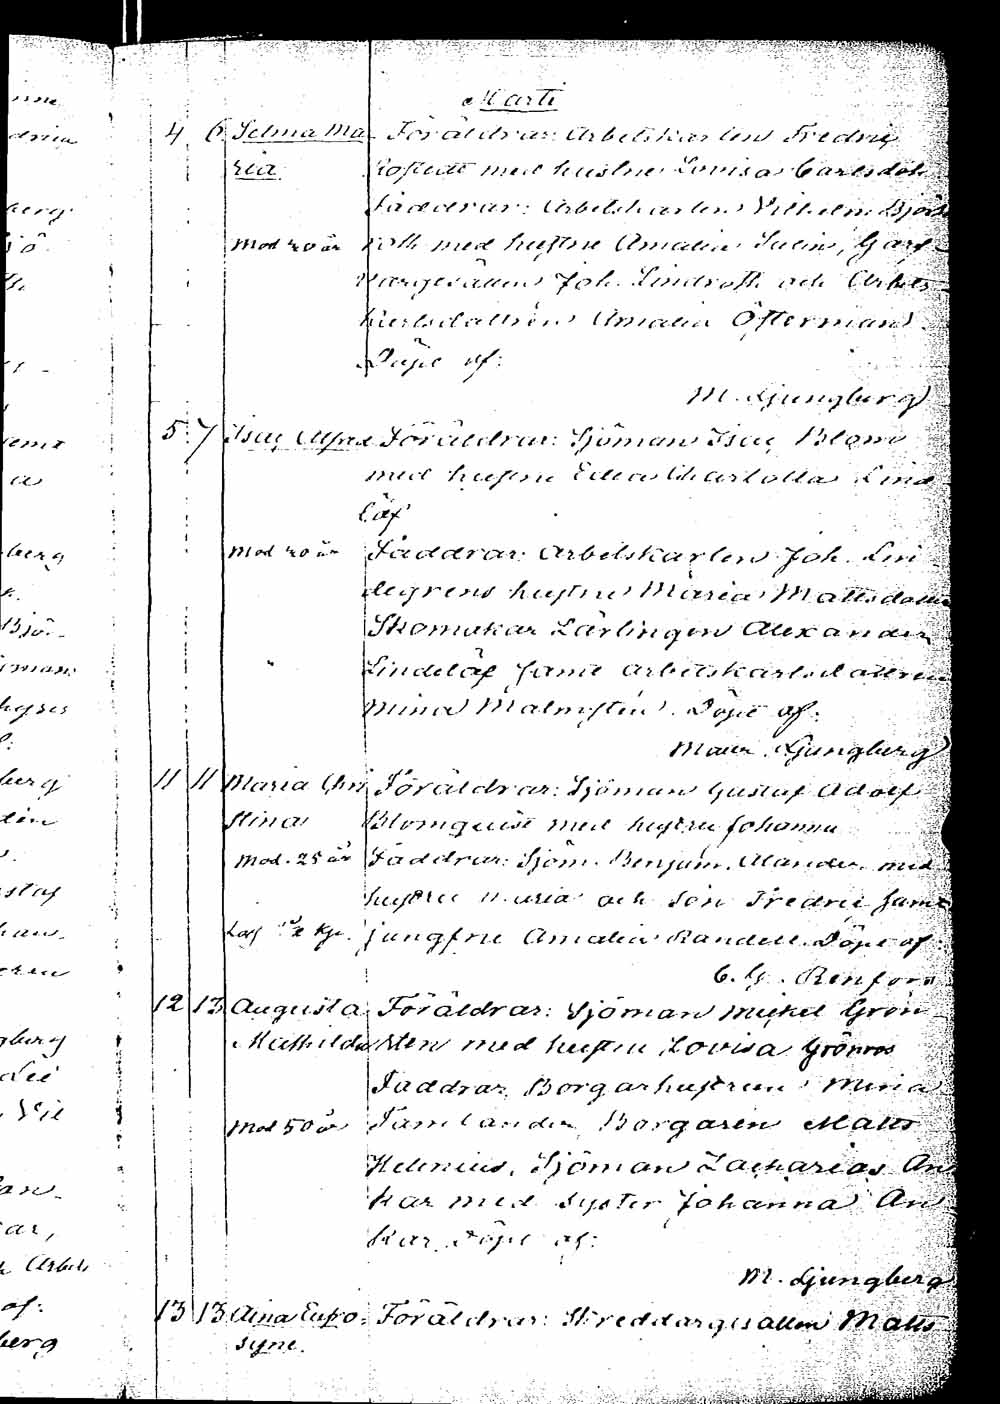 Marti
4 6 Selma Ma- Föräldrar: Arbetskarlen Fredric
ria med hustru Lovisa Carlsdotr
Faddrar: Arbetskarlen Vilhelm Björk
Mod 20 år roth med hustru Amalia Garf-
vargesällen Joh. Lindroth och Arbets-
karlsdottren Amalia Österman.
Döpt af:
M. Ljungberg
5 7 Isac Alfred Föräldrar: Sjöman Isac Blom
med hustru Edla Charlotta Lind
löf
Mod 20 år Faddrar: Arbetskarlen Joh. Lin-
degrens hustru Maria Mattsdotter
Skomakar Lärlingen Alexander
Lindelöf samt arbetskarlsdottren
Mina Malmsten. Döpt af:
Maur. Ljungberg
11 11 Maria Chri Föräldrar: Sjöman Gustaf Adolf
stina Blomquist med hustru Johanna
Mod. 25 år Faddrar: Sjöm. Benjam. Alander med
hustru Maria och son Fredric samt
jungfru Amalia Randell. Döpt af:
C. G. Renfors
12 13 Augusta Föräldrar: Sjöman Mickel Grön
Mathilda sten med hustru Lovisa Grönroos
Faddrar. Borgarhustrun Mina
Mod 50 år Tamlander, Borgaren Matts
Helenius, Sjöman Zacharias An
kar med syster Johanna An
kar. Döpt af:
M. Ljungberg
13 13 Aina Eufro- Föräldrar: Skreddargesällen Matts
syne.